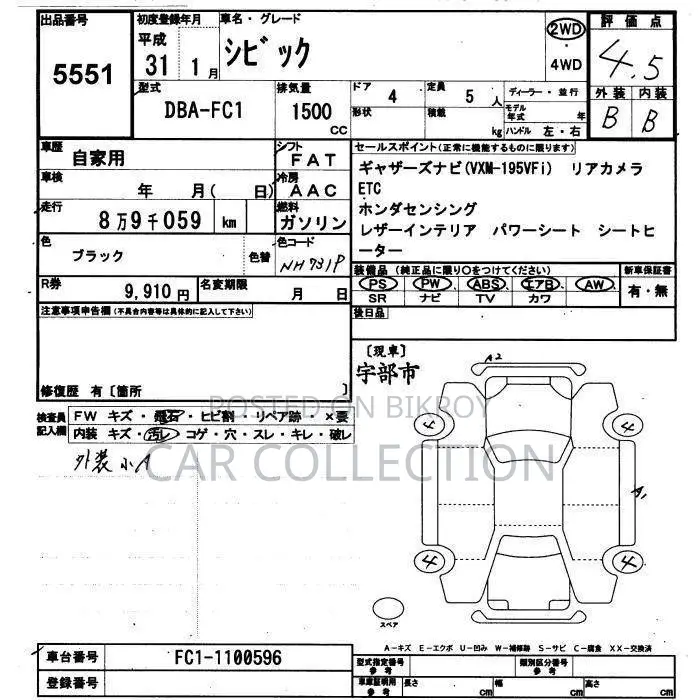 出品番号 初度登録年月 車名・グレード 評価点
5551 平成 31 1月 シビック 2WD・4WD 4.5
型式 排気量 ドア 4 定員 5人 ディーラー・並行 外装 内装
DBA-FC1 1500 CC 形状 積載 kg モデル年式 年 ハンドル 左・右 B B
車歴 自家用 シフト FAT セールスポイント(正常に機能するものに限ります)
車検 年 月( 日) 冷房 AAC ギャザーズナビ(VXM-195VFi) リアカメラ
ETC
走行 8万9千059 km 燃料 ガソリン ホンダセンシング
色 ブラック 色替 色コード NH731P レザーインテリア パワーシート シートヒ
ーター
装備品(純正品に限り○をつけてください) 新車保証書
R券 9,910円 名変期限 月 日 PS、PW、ABS、エアB、AW、 有・無
SR ナビ TV カワ
注意事項申告欄(不具合内容等は具体的に記入して下さい) 後日品
[現車]
宇部市
修復歴 有[箇所 ]
POSTED ON BIKROY
CAR COLLECTION
検査員記入欄 FW キズ・飛石・ヒビ割・リペア跡・×要
内装 キズ・汚レ・コゲ・穴・スレ・キレ・破レ
外装小A
A2
4 4
A1
4 4
スペア
A-キズ E-エクボ U-凹み W-補修跡 S-サビ C-腐食 XX-交換済
車台番号 FC1-1100596 型式指定番号 参考 類別区分番号 参考
登録番号 車庫証明用 参考 長さ cm 幅 cm 高さ cm